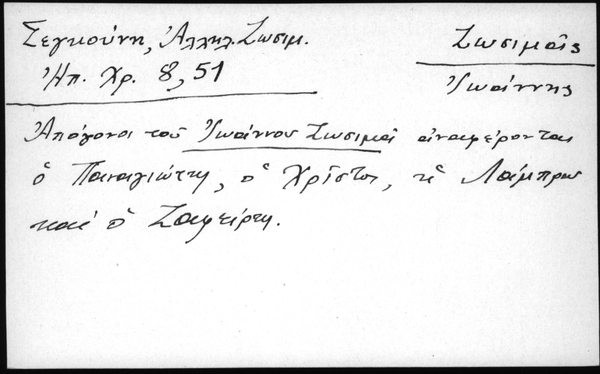 Σεγκούνη, Ἀλληλ. Ζωσιμ.
Ἠπ. Χρ. 8, 51
Ζωσιμᾶς
Ἰωάννης
Ἀπόγονοι τοῦ Ἰωάννου Ζωσιμᾶ ἀναφέρονται
ὁ Παναγιώτης, ὁ Χρῖστος, ὁ Λάμπρος
καί ὁ Ζαφείρης.